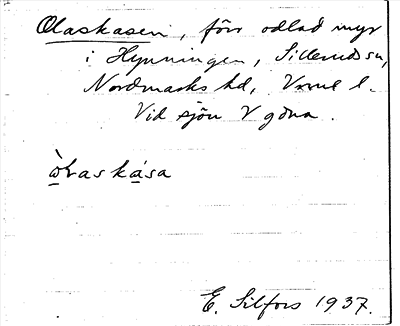 Olaskasen, förr odlad myr
i Hynningen, Sillerud sn,
Nordmarks hd, Vrml l.
Vid sjön V göna.
òlaskása
E. Silfors 1937.